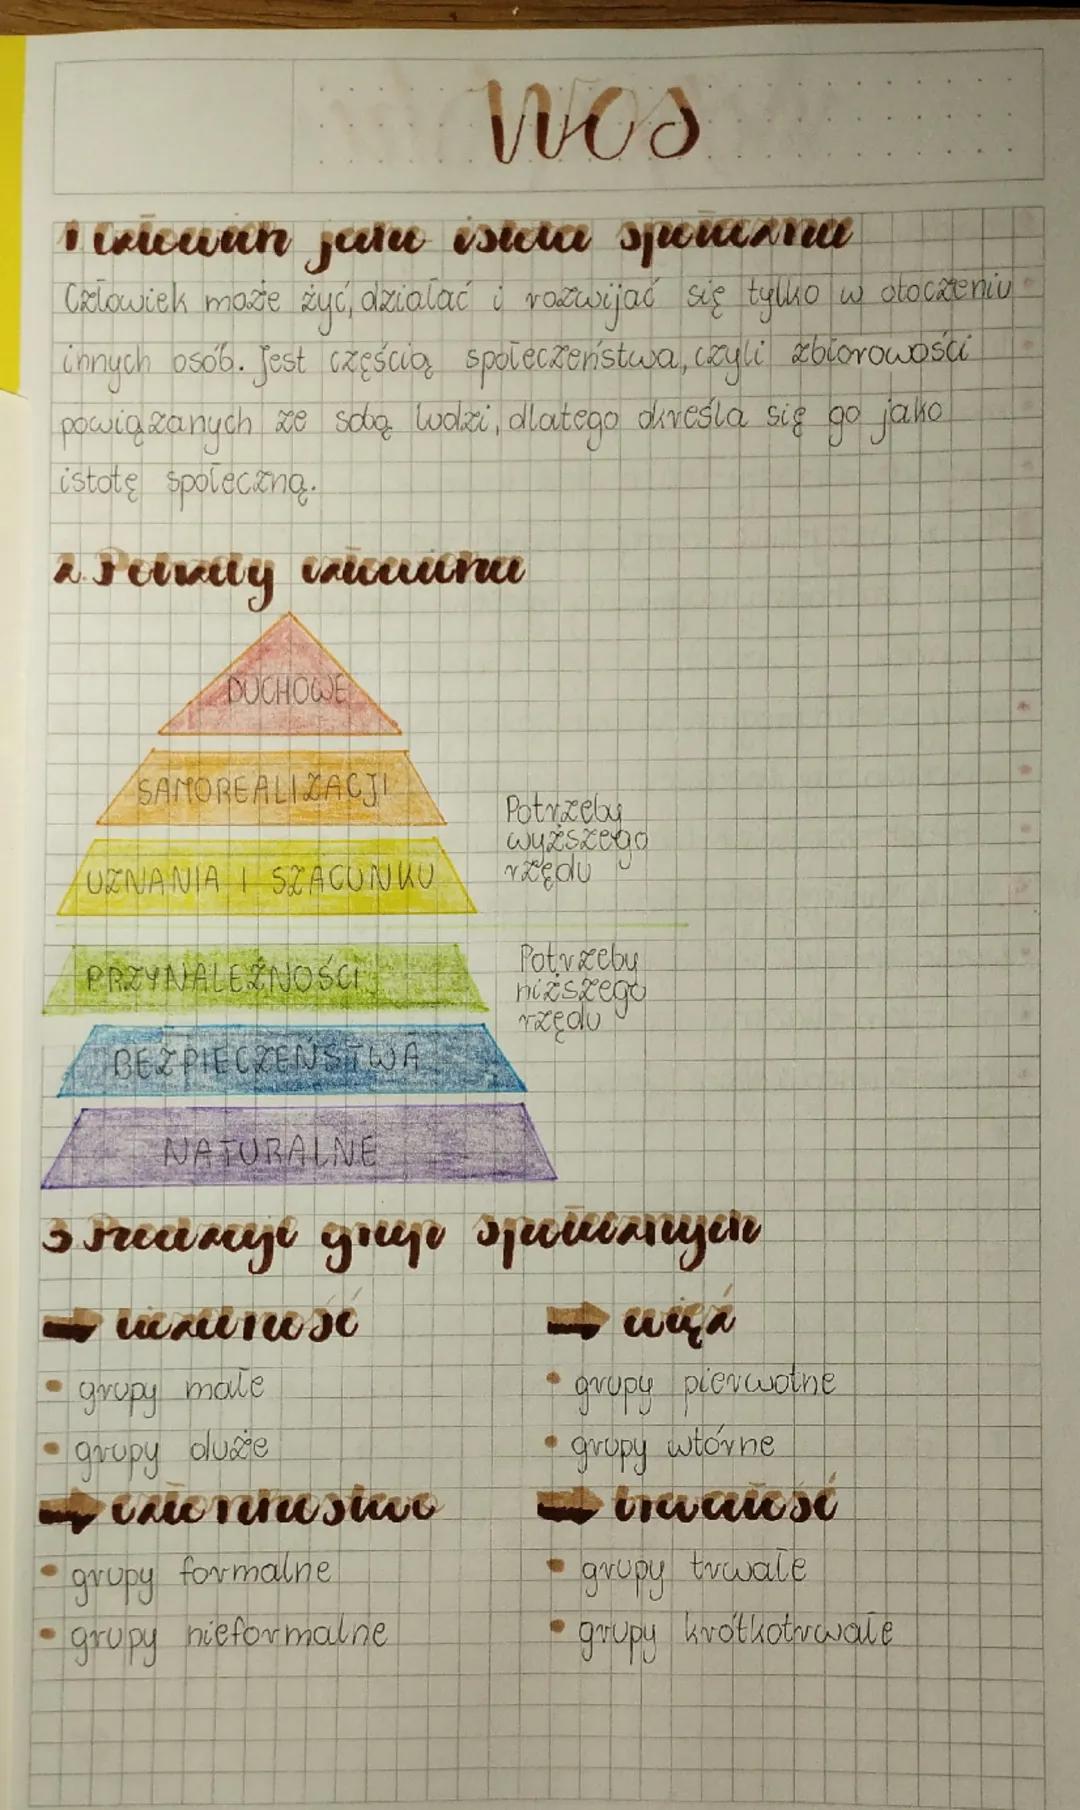 WOS
1 Człowiek jako istota społeczna
Człowiek może żyć, działać i rozwijać się tylko w otoczeniu
innych osób. Jest częścią społeczeństwa, czyli zbiorowości
powiązanych ze sobą ludzi, dlatego określa się go jako
istotę społeczną.
2. Potrzeby człowieka
DUCHOWE
SAMOREALIZACJI
UZNANIA I SZACUNKU
Potrzeby
wyższego
rzędu
PRZYNALEŻNOŚCI
BEZPIECZEŃSTWA
NATURALNE
Potrzeby
niższego
rzędu
3 Rodzaje grup społecznych
➡ liczebność
• grupy małe
• grupy duże
➡ więź
• grupy pierwotne
• grupy wtórne
➡ członkostwo
• grupy formalne
• grupy nieformalne
➡ trwałość
• grupy trwałe
• grupy krótkotrwałe